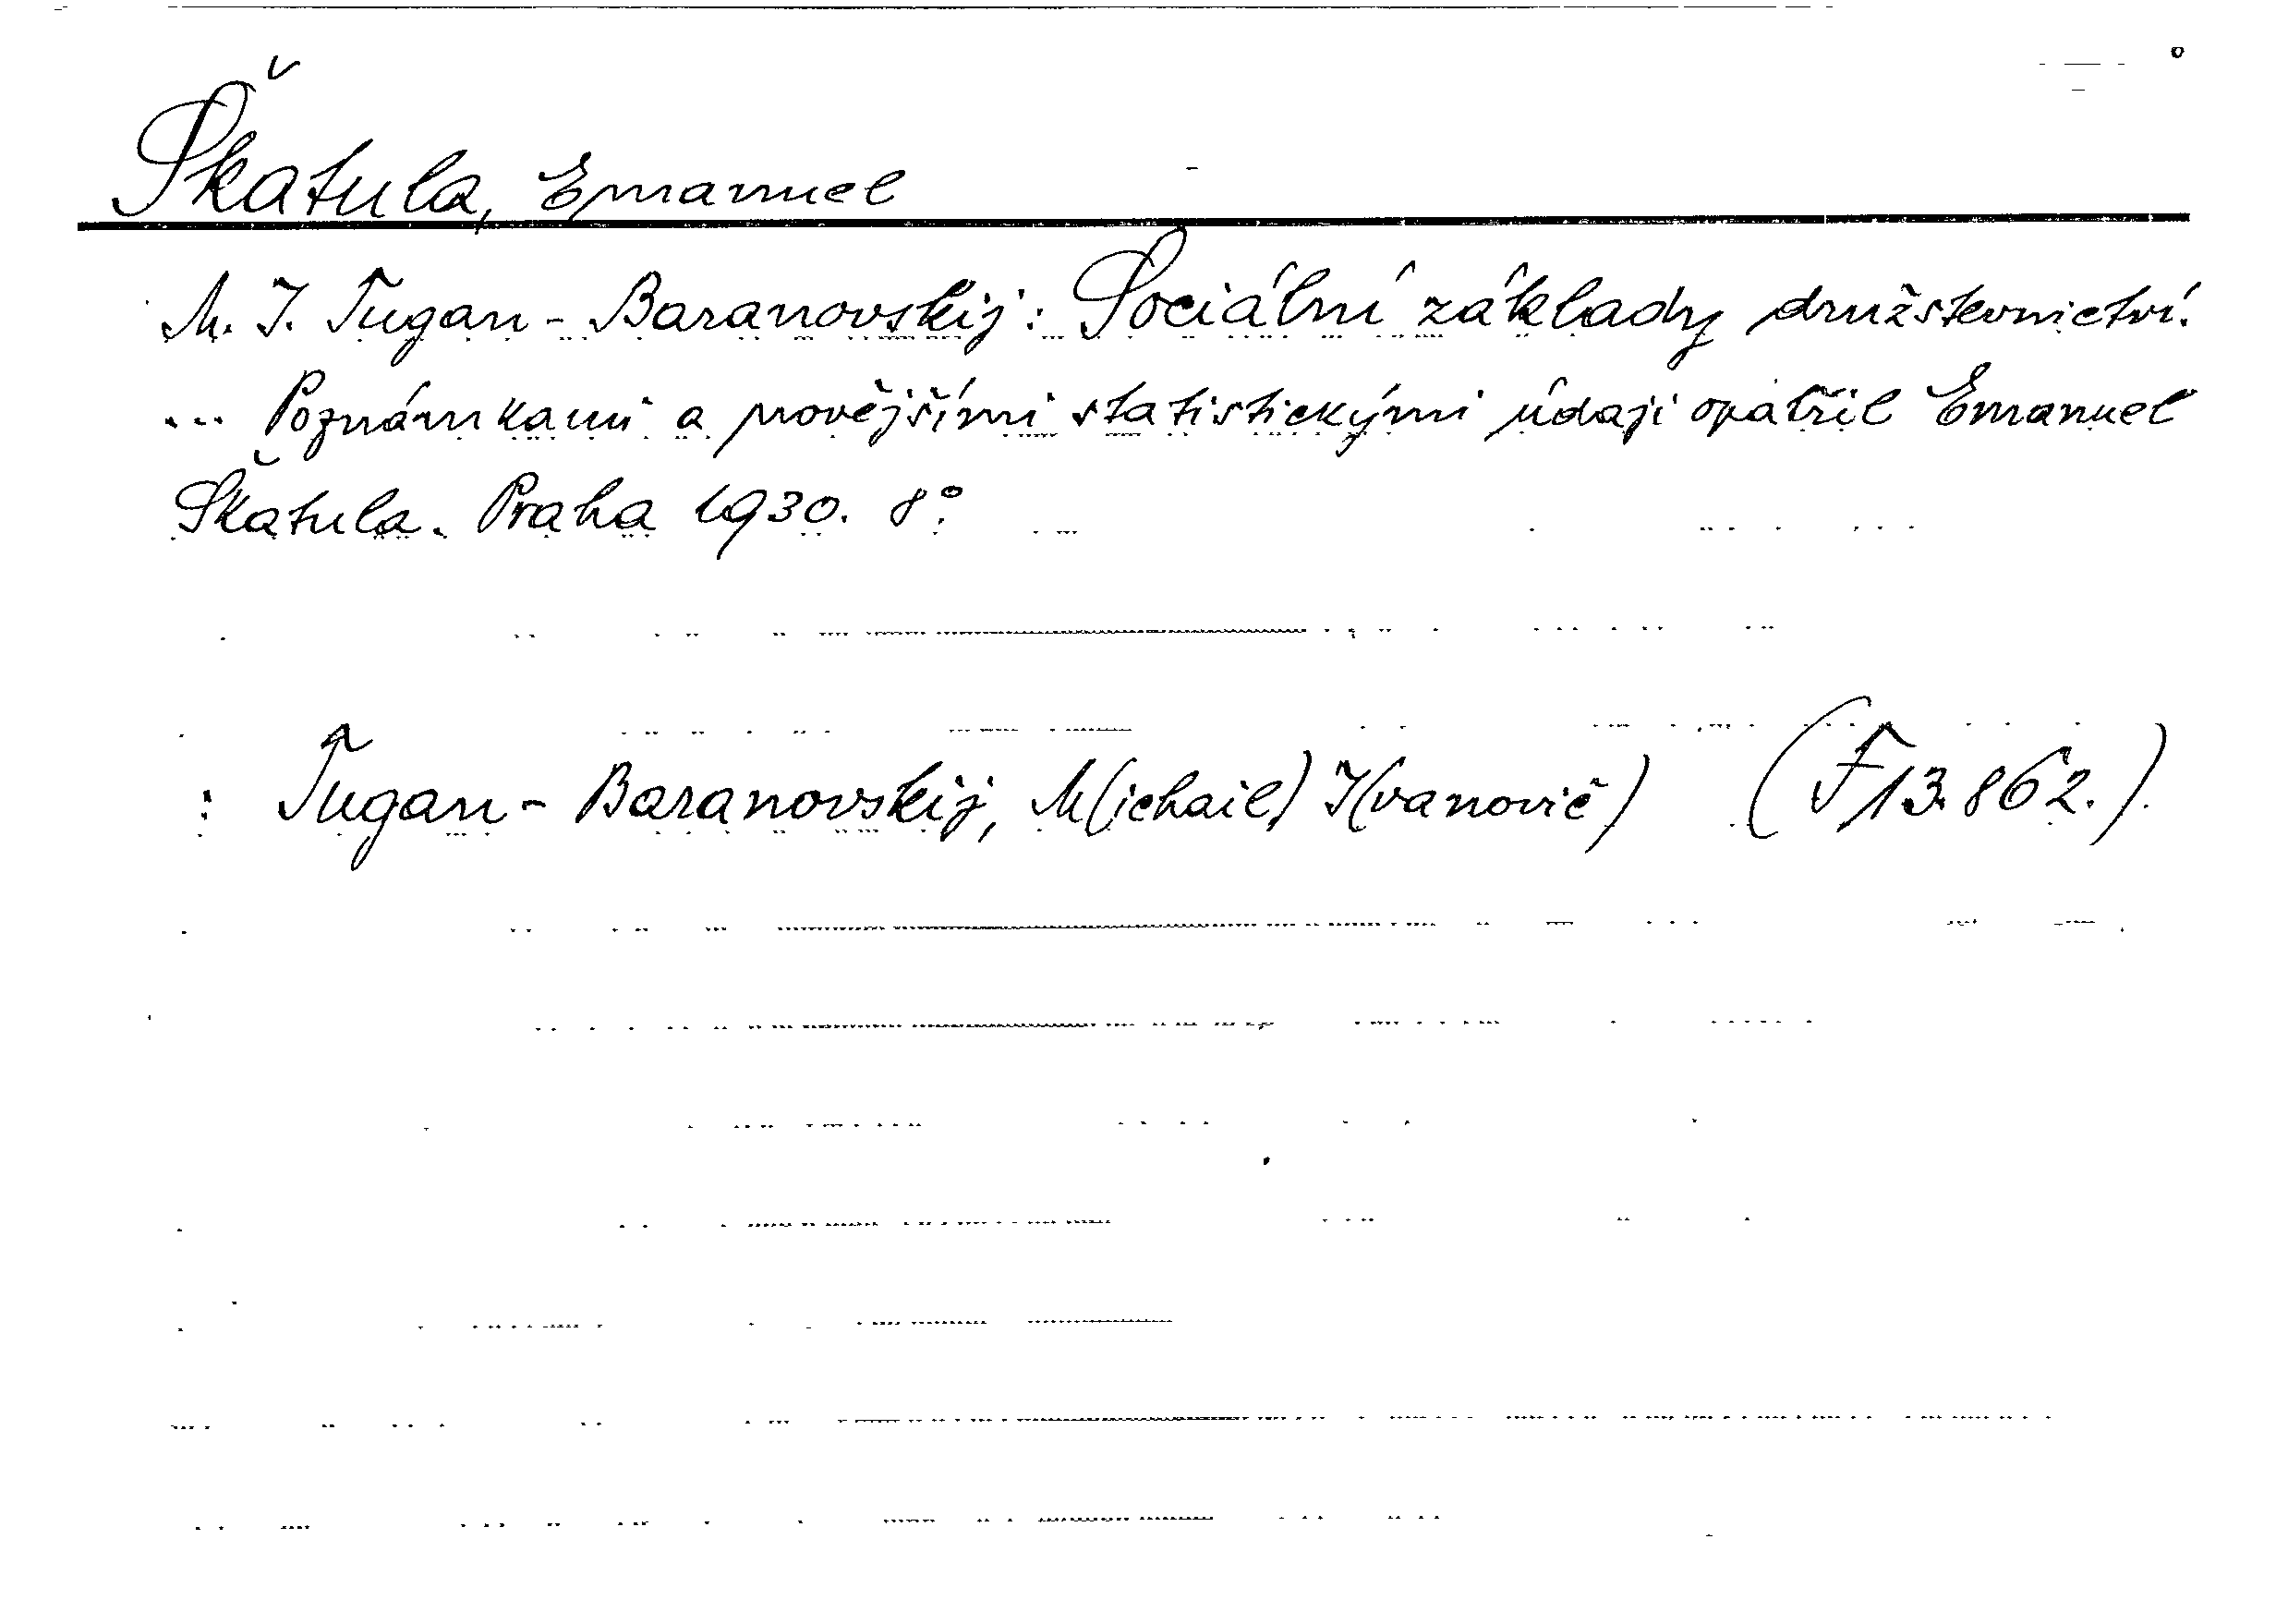 Škatula, Emanuel
M. I. Tugan-Baranovskij: Sociální základy družstevnictví.
... Poznámkami a novějšími statistickými údaji opatřil Emanuel
Škatula. Praha 1930. 8°.
: Tugan-Baranovskij, M(ichail) I(vanovič) (F 13.862.).